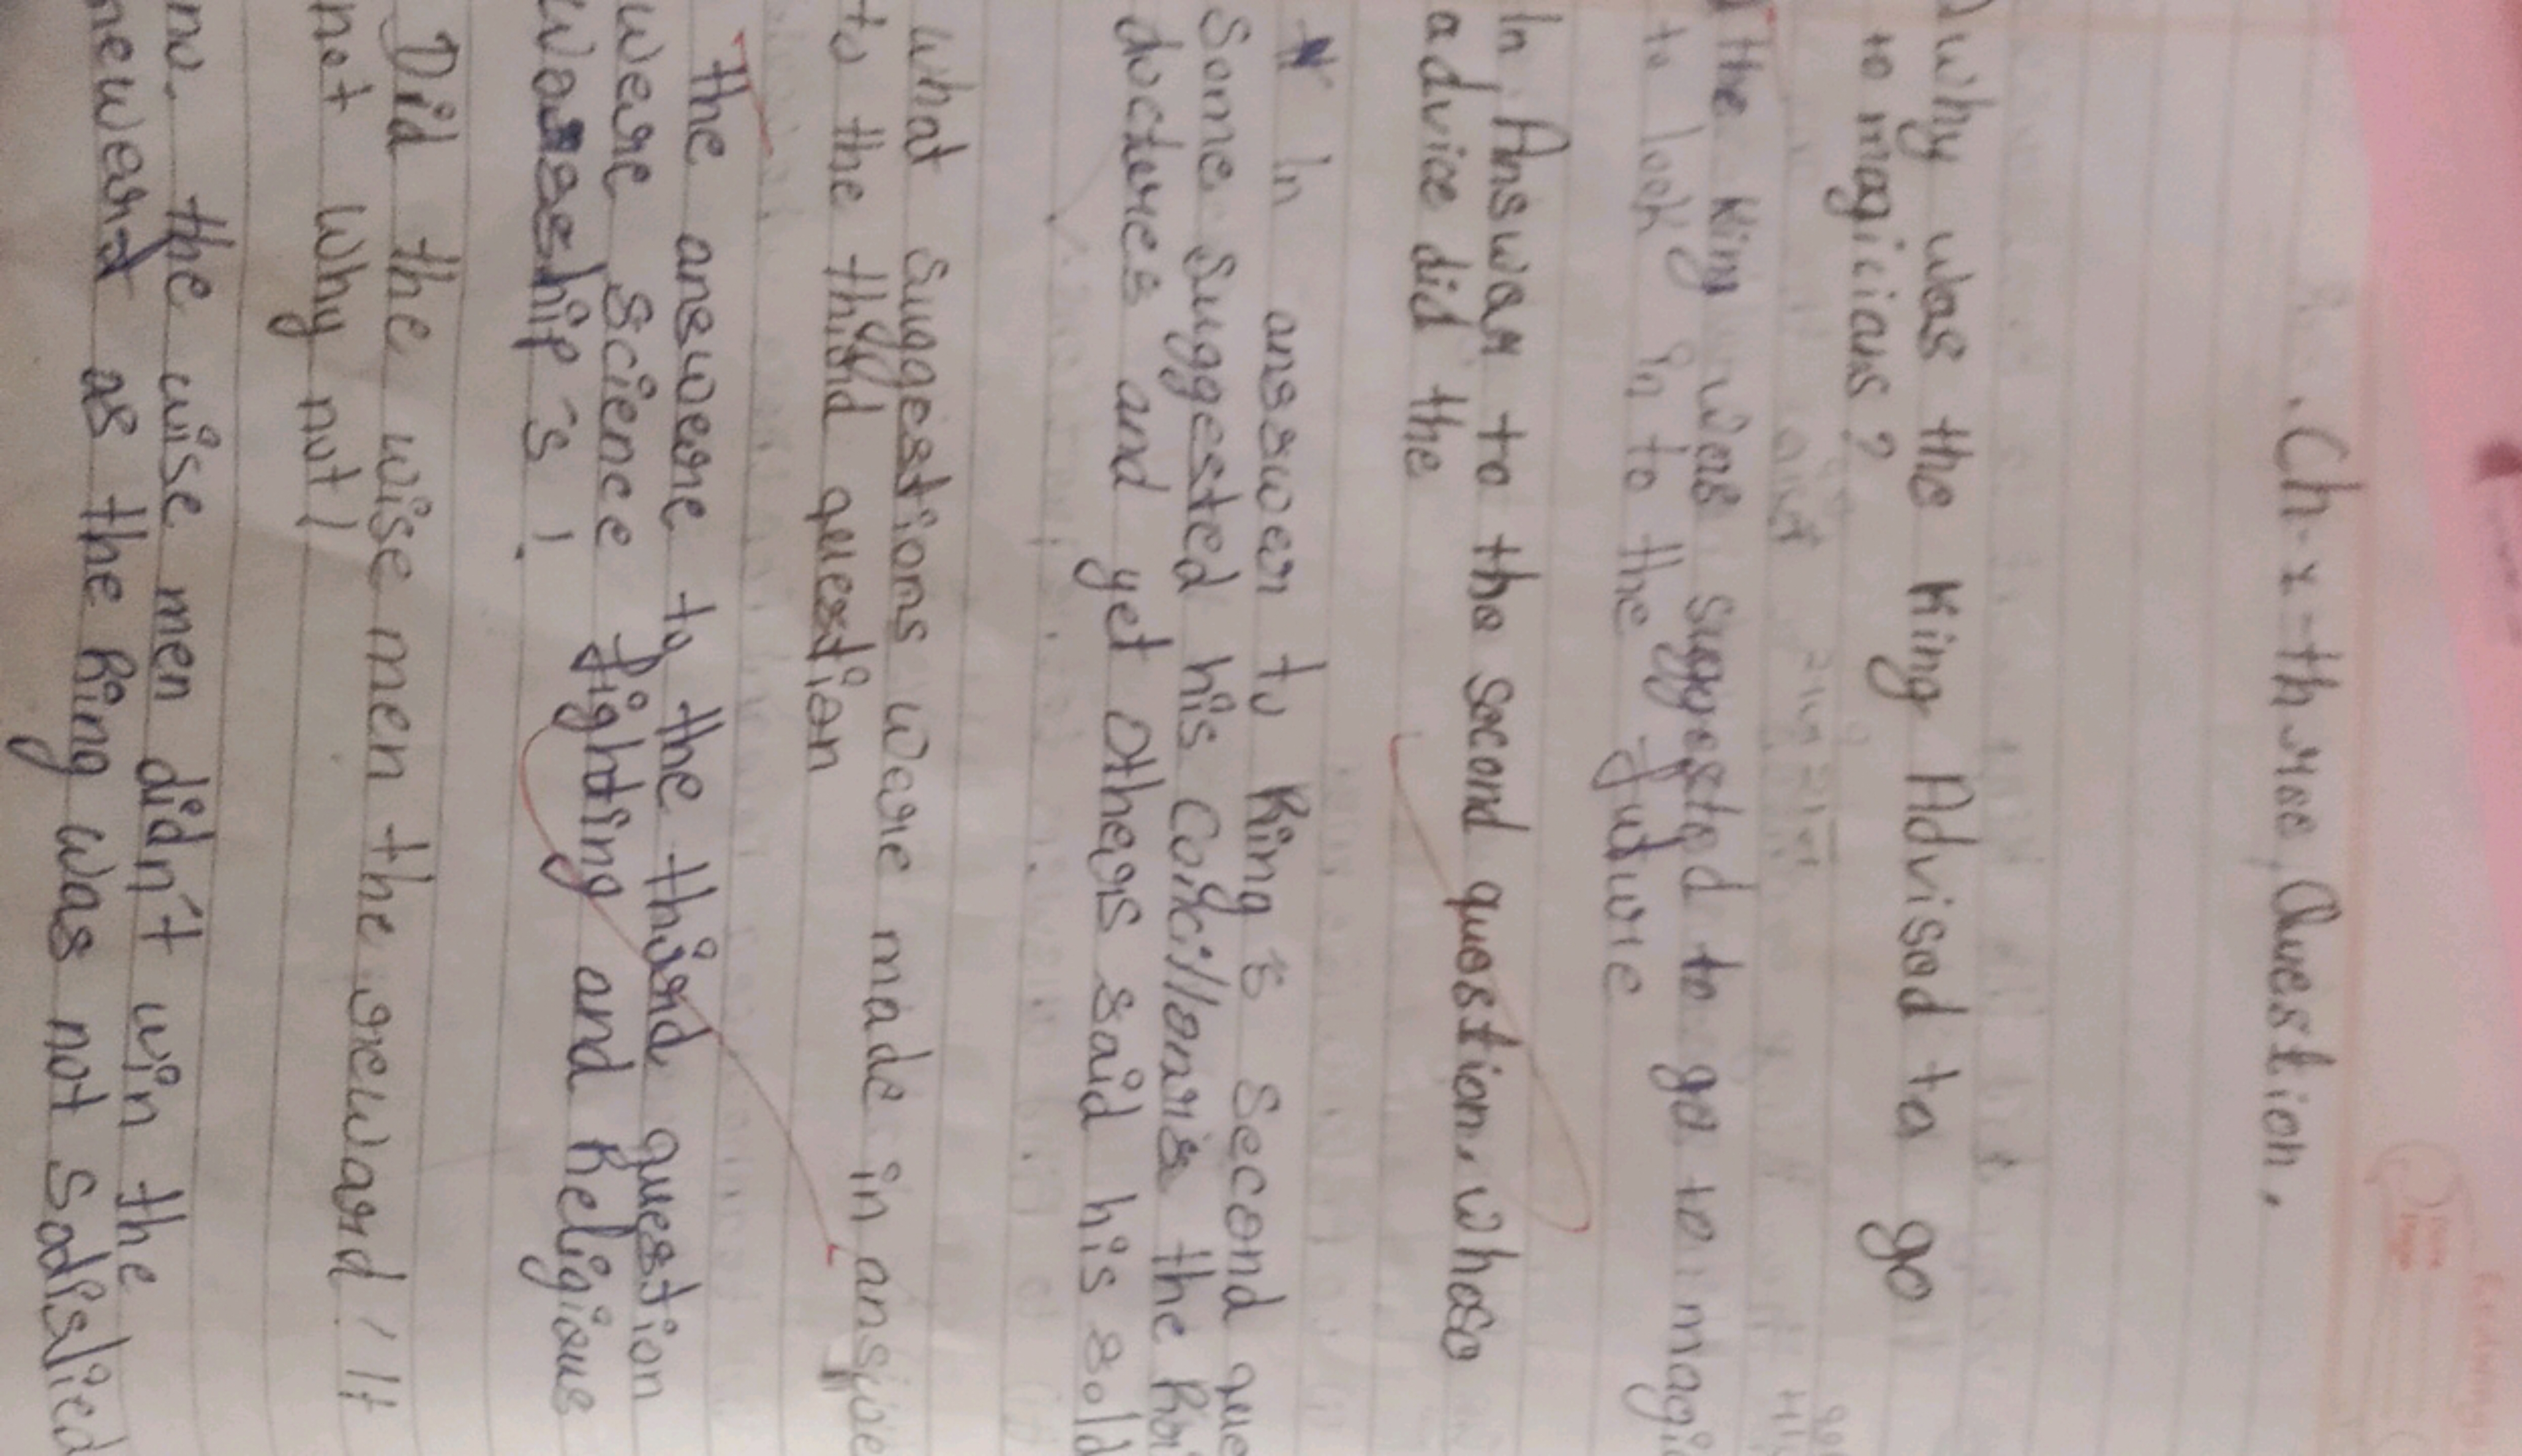 Ch-2-three Question.
why was the King Advised to go
to magicians?
the King was suggested to go to magi
to look in to the future
In Answar to the second question, whose
advice did the
In answer to King's Second que
Some Suggested his Councillors the
doctures and yet Others said his sold
what suggestions were made in answe
to the third question
the answere to the third question
were science fighting and Religious
Worseship's!
Did the wise men the reward / If
not Why not!
the wise men didn't win the
reward as the King was not Sadislied